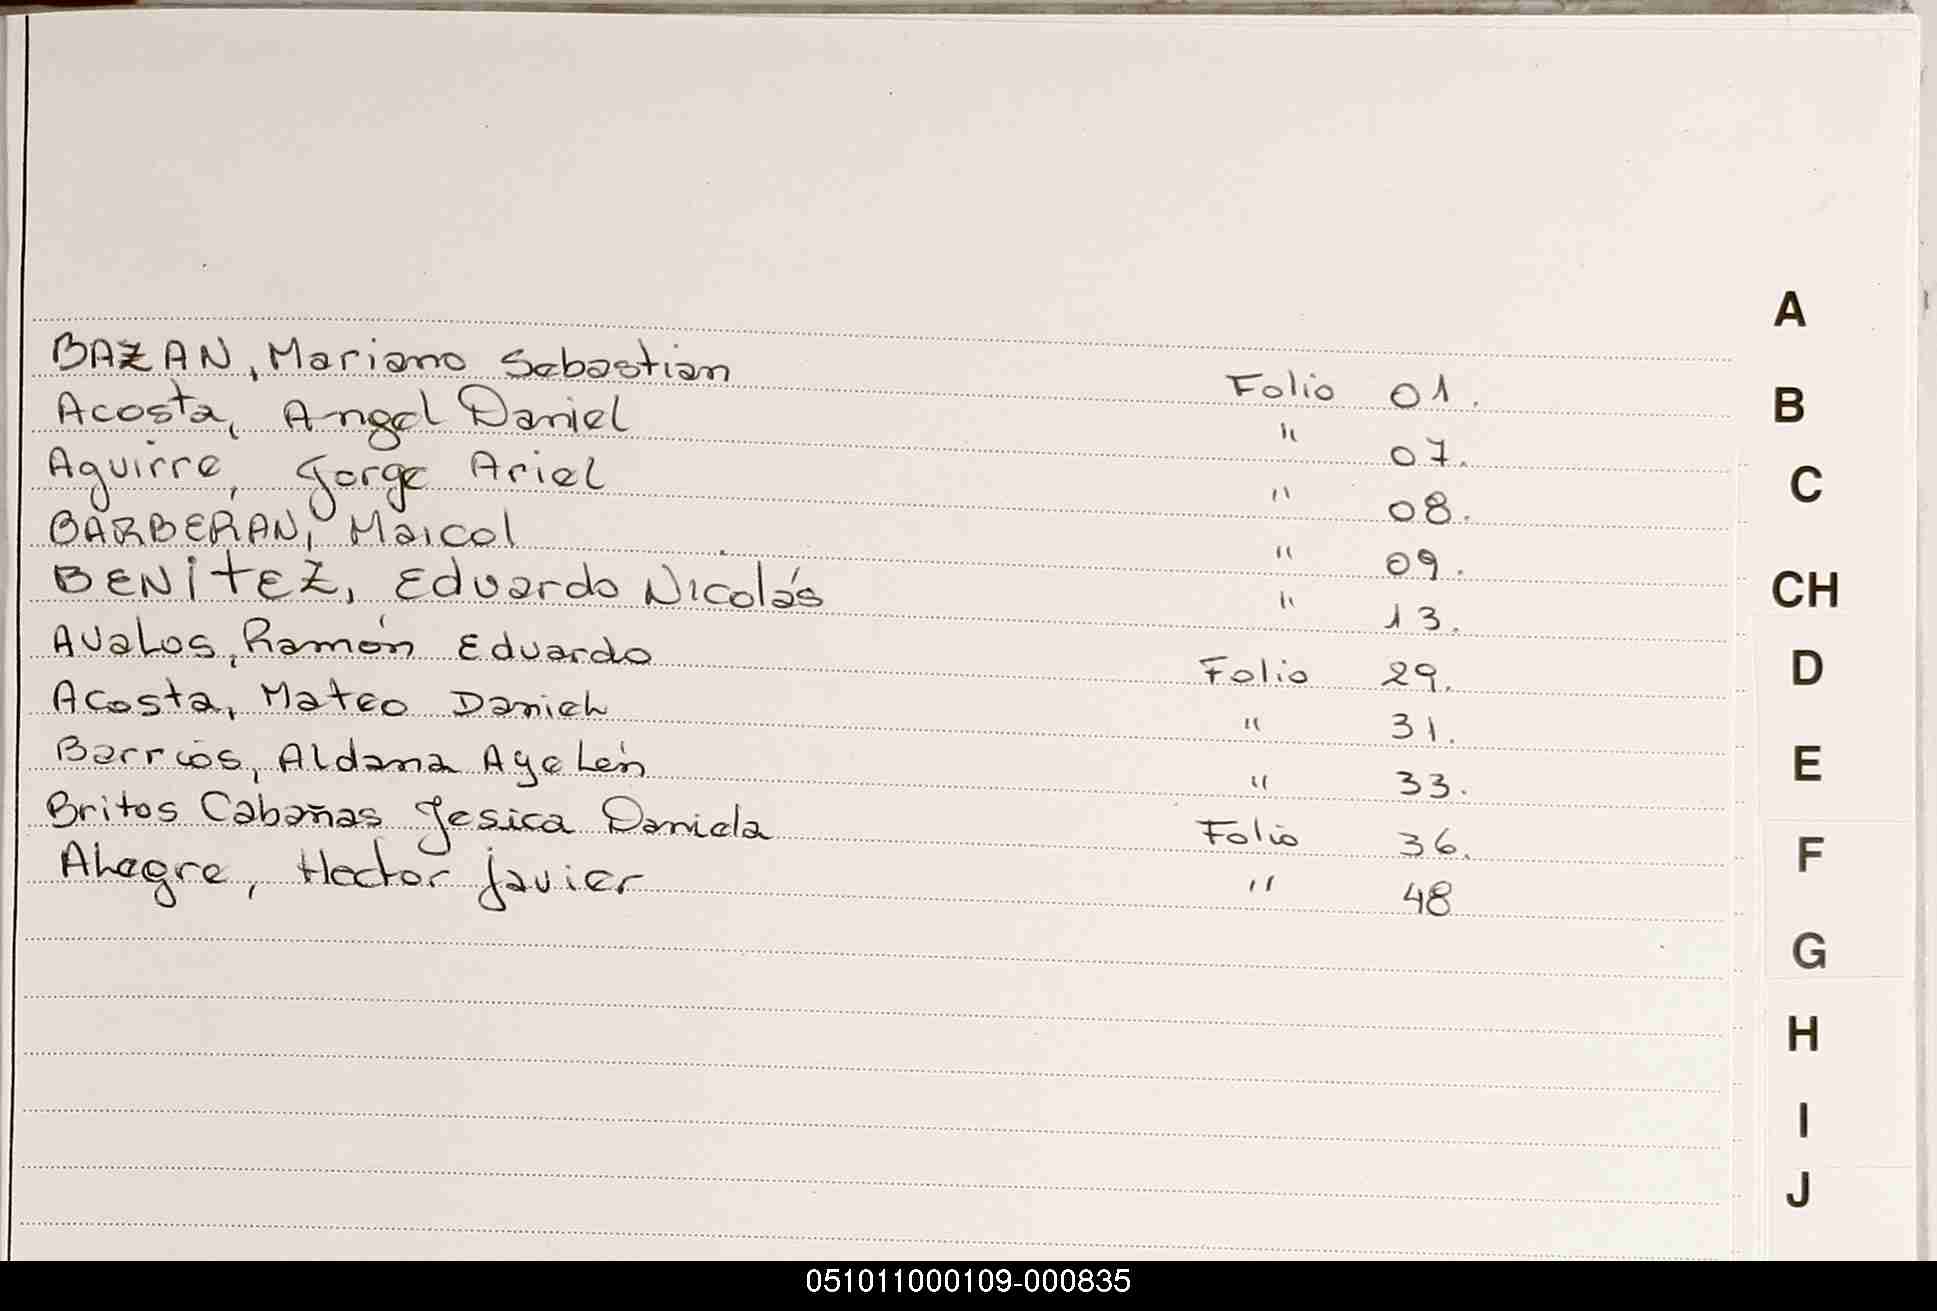 BAZAN, Mariano Sebastian Folio 01.
Acosta, Angel Daniel " 07.
Aguirre, Jorge Ariel " 08.
BARBERAN, Maicol " 09.
BENITEZ, Eduardo Nicolás " 13.
Avalos, Ramón Eduardo Folio 29.
Acosta, Mateo Daniel " 31.
Barrios, Aldana Ayelén " 33.
Britos Cabañas Jesica Daniela Folio 36.
Alegre, Hector Javier " 48
A
B
C
CH
D
E
F
G
H
I
J
051011000109-000835